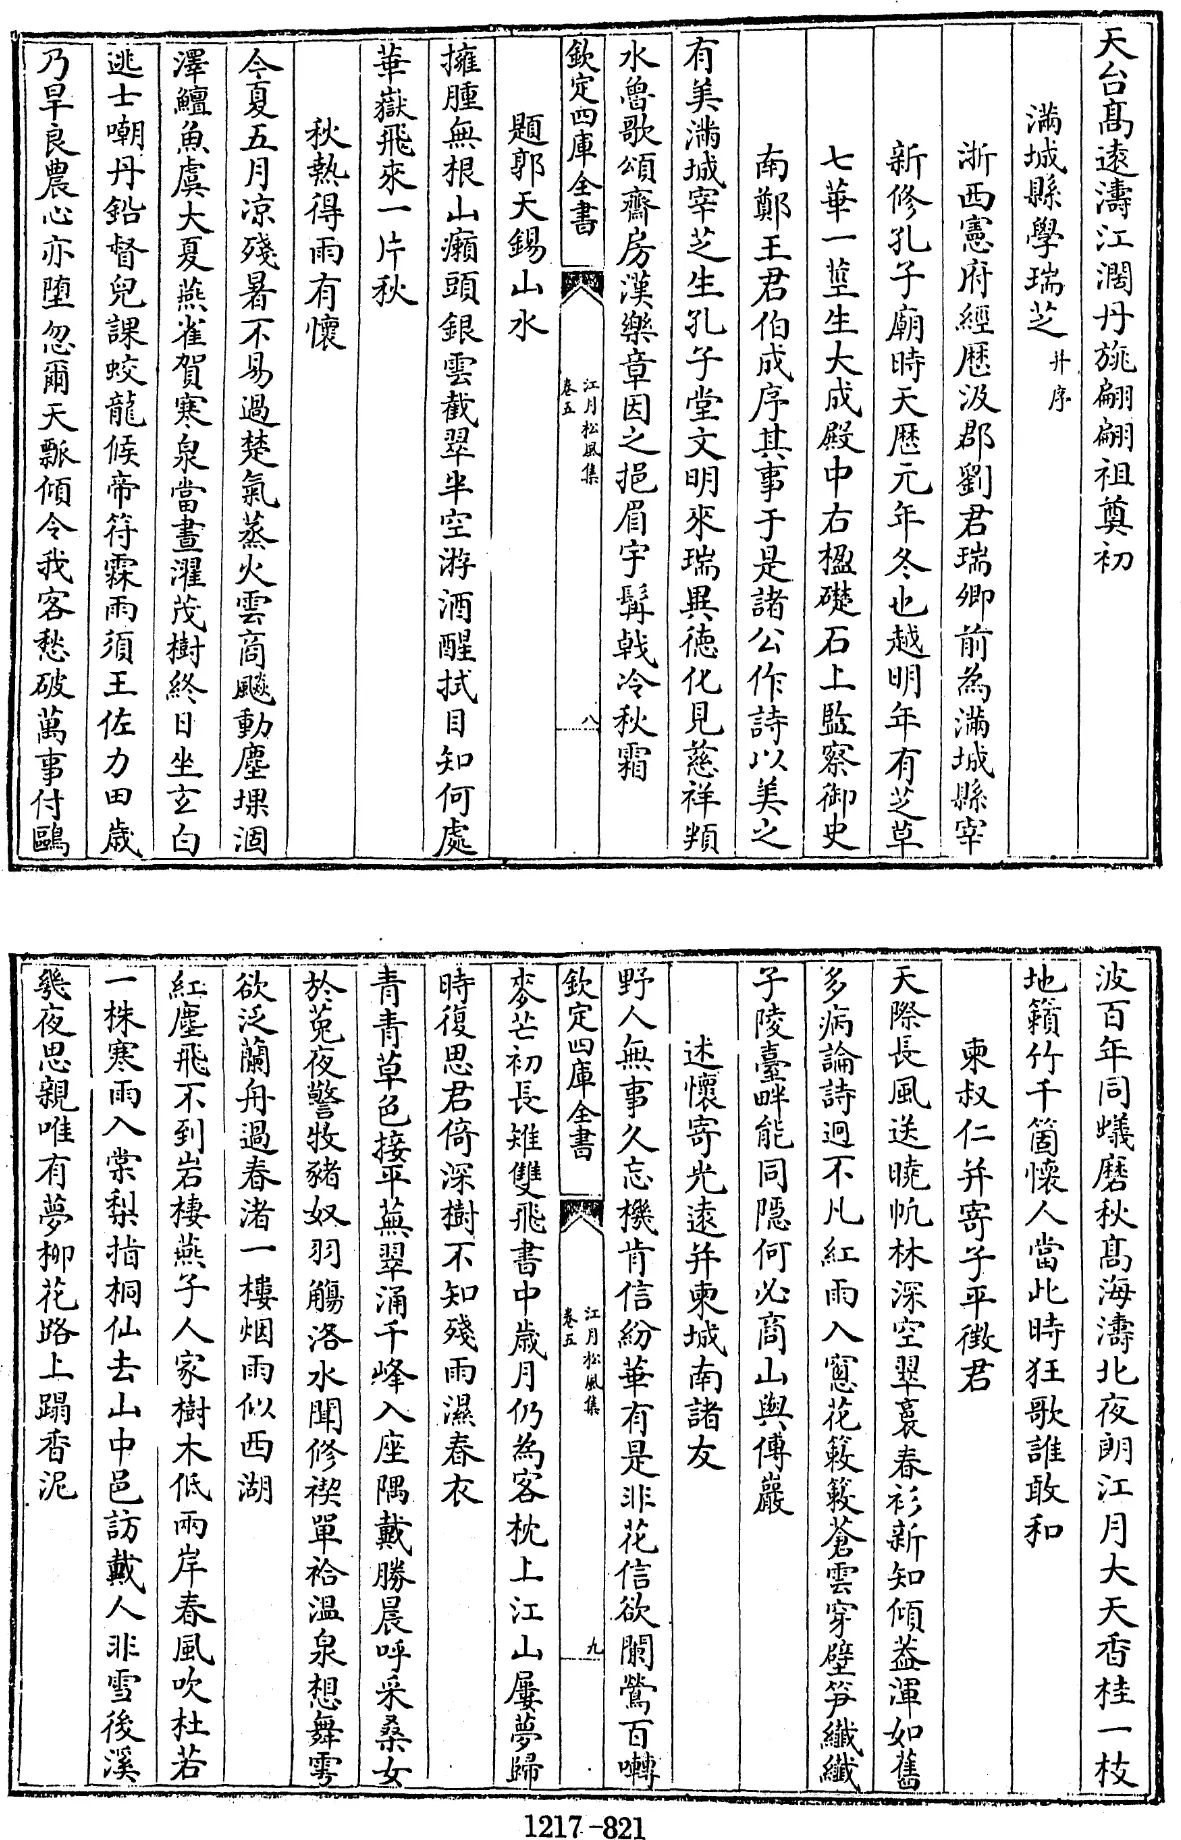 天台髙逺濤江濶丹旐翩翩祖奠初
滿城縣學瑞芝并序
浙西憲府經厯汲郡劉君瑞卿前為滿城縣宰
新修孔子廟時天厯元年冬也越明年有芝草
七華一莖生大成殿中右楹礎石上監察御史
南鄭王君伯成序其事于是諸公作詩以美之
有美滿城宰芝生孔子堂文明來瑞異徳化見慈祥𩔖
水魯歌頌齋房漢樂章因之挹眉宇髯㦸冷秋霜
欽定四庫全書
江月松風集
卷五
八
題郭天錫山水
擁腫無根山癩頭銀雲截翠半空游酒醒拭目知何處
華嶽飛來一片秋
秋熱得雨有懷
今夏五月凉殘暑不易過楚氣蒸火雲商飇動塵堁涸
澤鱣魚虞大夏燕雀賀寒泉當晝濯茂樹終日坐玄白
逃士嘲丹鉛督兒課蛟龍候帝符霖雨須王佐力田歳
乃旱良農心亦堕忽爾天瓢傾令我客愁破萬事付鷗
波百年同蟻磨秋髙海濤北夜朗江月大天香桂一枝
地籟竹千箇懷人當此時狂歌誰敢和
柬叔仁并寄子平徴君
天際長風送曉帆林深空翠裛春衫新知傾葢渾如舊
多病論詩迥不凡紅雨入窻花簌簌蒼雲穿壁笋纎纎
子陵臺畔能同隠何必商山與傅巖
述懷寄光逺并柬城南諸友
野人無事久忘機肯信紛華有是非花信欲闌鶯百囀
欽定四庫全書
江月松風集
卷五
九
麥芒初長雉雙飛書中歳月仍為客枕上江山屢夢歸
時復思君倚深樹不知殘雨濕春衣
青青草色接平蕪翠涌千峰入座隅戴勝晨呼采桑女
於菟夜警牧豬奴羽觴洛水聞修禊單袷温泉想舞雩
欲泛蘭舟過春渚一樓烟雨似西湖
紅塵飛不到岩棲燕子人家樹木低兩岸春風吹杜若
一株寒雨入棠梨指桐仙去山中邑訪戴人非雪後溪
㡬夜思親唯有夢柳花路上蹋香泥
1217-821